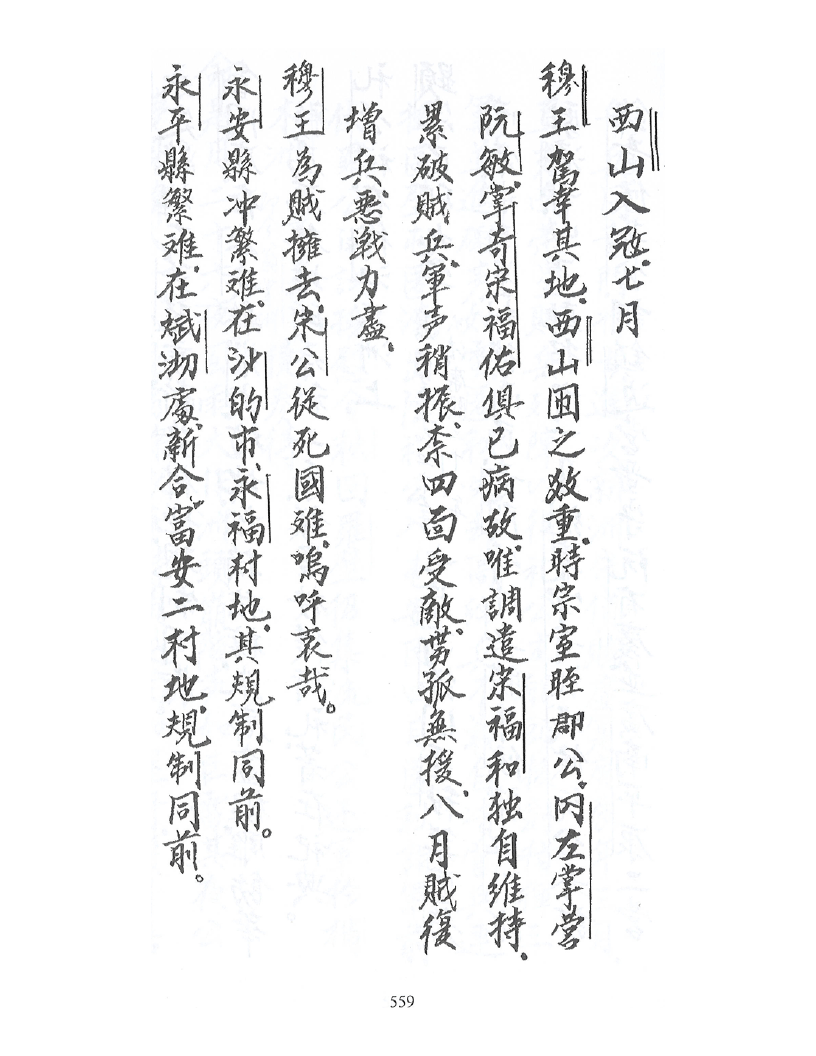 西山入冦。七月
穆王駕幸其地。西山困之数重。時宗室晊郡公。内左掌营
阮敏。掌奇宋福佑俱已病故。唯調遣宋福和独自維持。
累破賊兵。軍声稍振。柰四面受敵。势孤無援。八月賊復
增兵。悪戦力盡。
穆王為賊擁去。宋公從死國难。嗚呼哀哉。
永安縣冲繁难。在沙的市、永福村地。其規制同前。
永平縣繁难。在斌沏處、新合、富安二村地。規制同前。
559